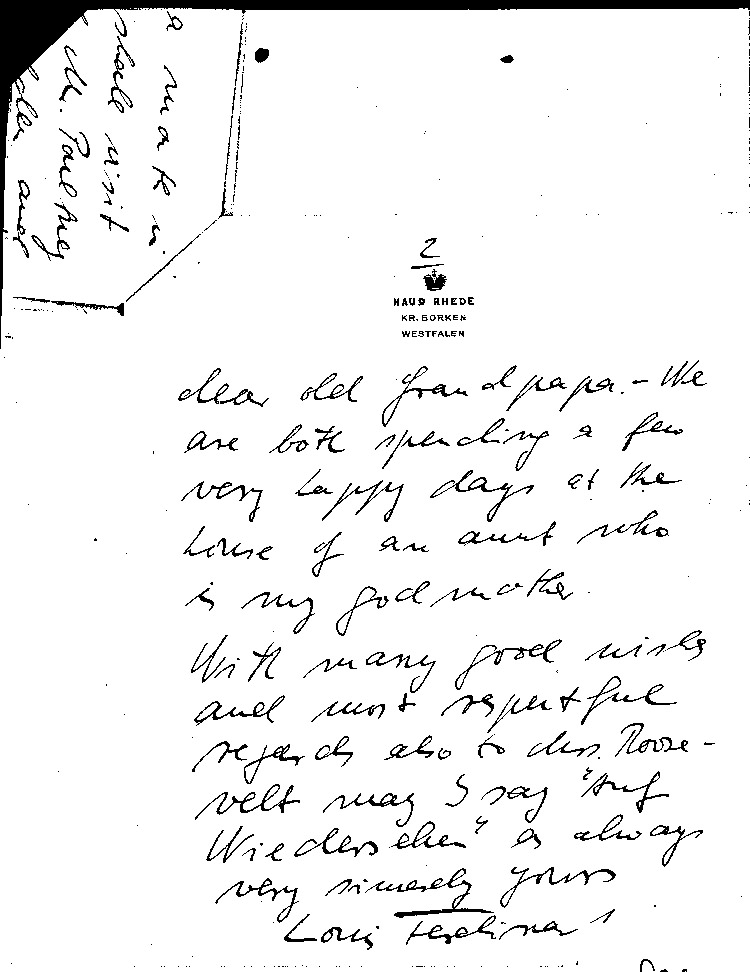 a make u
shall visit
Mr. Paul Mey
and
2
HAUS RHEDE
KR. BORKEN
WESTFALEN
dear old Grandpapa. - We
are both spending a few
very happy days at the
house of an aunt who
is my godmother.
With many good wishes
and most respectful
regards also to Mrs. Roose-
velt may I say "Auf
Wiedersehen" as always
very sincerely yours
Louis Ferdinand